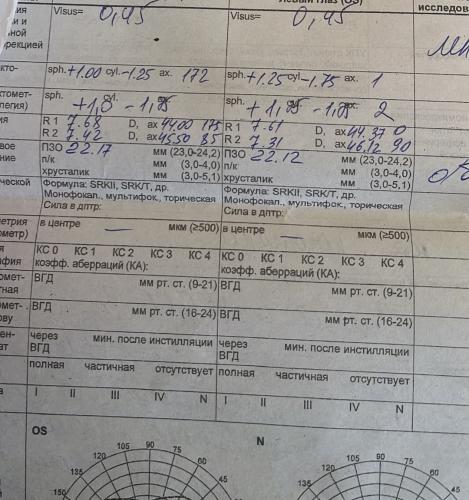 Левый глаз (OS)
Visus= 0,95 Visus= 0,95
исследов
рекцией
sph. +1.00 cyl. -1.25 ax. 172 sph. +1.25 cyl. -1.75 ax. 1
легия)
R 1 7.68 D, ax 44,00 175 R 1 7.61 D, ax 44.37 0
R 2 7.42 D, ax 45,50 85 R 2 7.31 D, ax 46,12 90
ПЗО 22.17 мм (23,0-24,2) ПЗО 22.12 мм (23,0-24,2)
п/к мм (3,0-4,0) п/к мм (3,0-4,0)
хрусталик мм (3,0-5,1) хрусталик мм (3,0-5,1)
Формула: SRKII, SRK/T, др. Формула: SRKII, SRK/T, др.
Монофокал., мультифок., торическая Монофокал., мультифок., торическая
Сила в дптр: Сила в дптр:
в центре — мкм (≥500) в центре — мкм (≥500)
КС 0 КС 1 КС 2 КС 3 КС 4 КС 0 КС 1 КС 2 КС 3 КС 4
коэфф. аберраций (КА): коэфф. аберраций (КА):
ВГД мм рт. ст. (9-21) ВГД мм рт. ст. (9-21)
ВГД мм рт. ст. (16-24) ВГД мм рт. ст. (16-24)
через мин. после инстилляции через мин. после инстилляции
ВГД ВГД
полная частичная отсутствует полная частичная отсутствует
I II III IV N I II III IV N
OS N
120 105 90 75 60 120 105 90 75 60
135 45 135 45
150